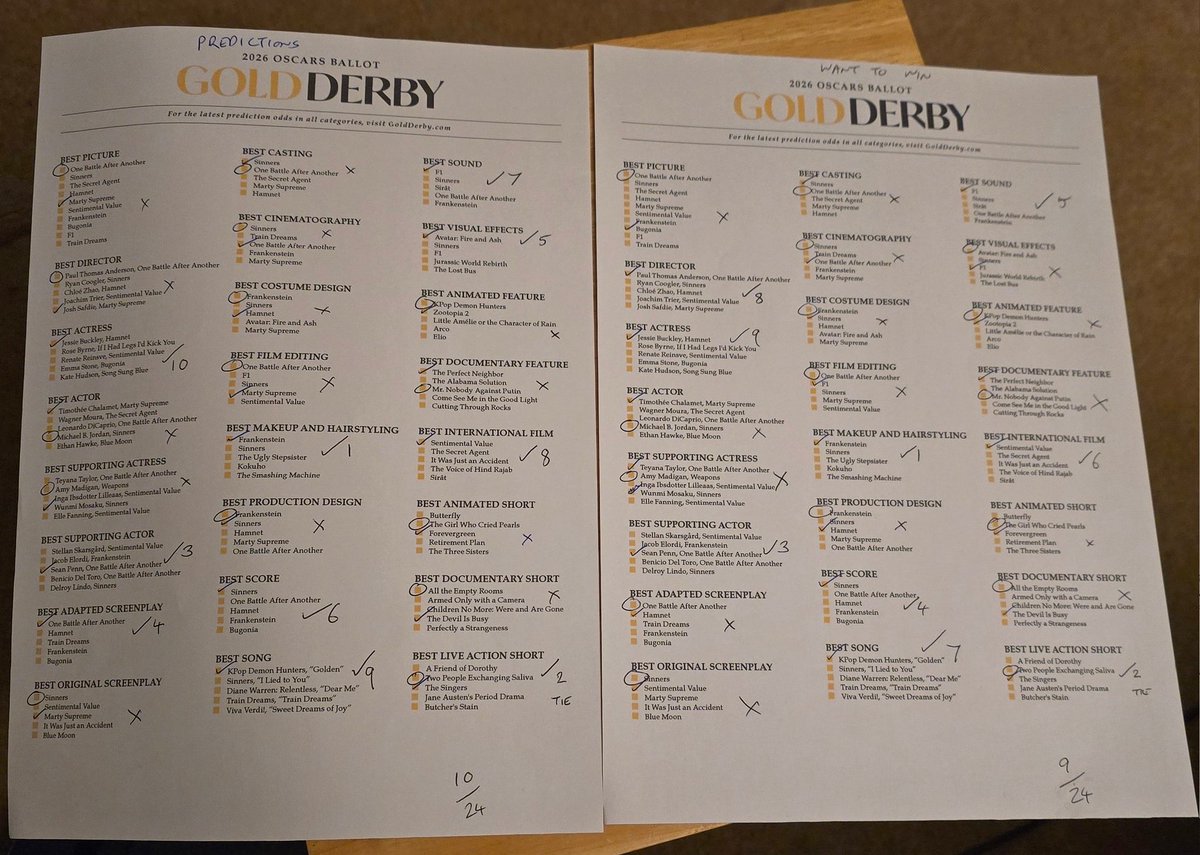 PREDICTIONS
2026 OSCARS BALLOT
GOLD DERBY
For the latest prediction odds in all categories, visit GoldDerby.com
BEST PICTURE
One Battle After Another
Sinners
The Secret Agent
Hamnet
Marty Supreme
Sentimental Value
Frankenstein
Bugonia
F1
Train Dreams
X
BEST DIRECTOR
Paul Thomas Anderson, One Battle After Another
Ryan Coogler, Sinners
Chloé Zhao, Hamnet
Joachim Trier, Sentimental Value
Josh Safdie, Marty Supreme
X
BEST ACTRESS
Jessie Buckley, Hamnet
Rose Byrne, If I Had Legs I'd Kick You
Renate Reinsve, Sentimental Value
Emma Stone, Bugonia
Kate Hudson, Song Sung Blue
✓10
BEST ACTOR
Timothée Chalamet, Marty Supreme
Wagner Moura, The Secret Agent
Leonardo DiCaprio, One Battle After Another
Michael B. Jordan, Sinners
Ethan Hawke, Blue Moon
X
BEST SUPPORTING ACTRESS
Teyana Taylor, One Battle After Another
Amy Madigan, Weapons
Inga Ibsdotter Lilleaas, Sentimental Value
Wunmi Mosaku, Sinners
Elle Fanning, Sentimental Value
X
BEST SUPPORTING ACTOR
Stellan Skarsgård, Sentimental Value
Jacob Elordi, Frankenstein
Sean Penn, One Battle After Another
Benicio Del Toro, One Battle After Another
Delroy Lindo, Sinners
✓3
BEST ADAPTED SCREENPLAY
One Battle After Another
Hamnet
Train Dreams
Frankenstein
Bugonia
✓4
BEST ORIGINAL SCREENPLAY
Sinners
Sentimental Value
Marty Supreme
It Was Just an Accident
Blue Moon
X
BEST CASTING
Sinners
One Battle After Another
The Secret Agent
Marty Supreme
Hamnet
X
BEST CINEMATOGRAPHY
Sinners
Train Dreams
One Battle After Another
Frankenstein
Marty Supreme
X
BEST COSTUME DESIGN
Frankenstein
Sinners
Hamnet
Avatar: Fire and Ash
Marty Supreme
X
BEST FILM EDITING
One Battle After Another
F1
Sinners
Marty Supreme
Sentimental Value
X
BEST MAKEUP AND HAIRSTYLING
Frankenstein
Sinners
The Ugly Stepsister
Kokuho
The Smashing Machine
✓1
BEST PRODUCTION DESIGN
Frankenstein
Sinners
Hamnet
Marty Supreme
One Battle After Another
X
BEST SCORE
Sinners
One Battle After Another
Hamnet
Frankenstein
Bugonia
✓6
BEST SONG
KPop Demon Hunters, "Golden"
Sinners, "I Lied to You"
Diane Warren: Relentless, "Dear Me"
Train Dreams, "Train Dreams"
Viva Verdi!, "Sweet Dreams of Joy"
✓9
BEST SOUND
F1
Sinners
Sirāt
One Battle After Another
Frankenstein
✓7
BEST VISUAL EFFECTS
Avatar: Fire and Ash
Sinners
F1
Jurassic World Rebirth
The Lost Bus
✓5
BEST ANIMATED FEATURE
KPop Demon Hunters
Zootopia 2
Little Amélie or the Character of Rain
Arco
Elio
X
BEST DOCUMENTARY FEATURE
The Perfect Neighbor
The Alabama Solution
Mr. Nobody Against Putin
Come See Me in the Good Light
Cutting Through Rocks
X
BEST INTERNATIONAL FILM
Sentimental Value
The Secret Agent
It Was Just an Accident
The Voice of Hind Rajab
Sirāt
✓8
BEST ANIMATED SHORT
Butterfly
The Girl Who Cried Pearls
Forevergreen
Retirement Plan
The Three Sisters
X
BEST DOCUMENTARY SHORT
All the Empty Rooms
Armed Only with a Camera
Children No More: Were and Are Gone
The Devil Is Busy
Perfectly a Strangeness
X
BEST LIVE ACTION SHORT
A Friend of Dorothy
Two People Exchanging Saliva
The Singers
Jane Austen's Period Drama
Butcher's Stain
✓2
TIE
10/24
WANT TO WIN
2026 OSCARS BALLOT
GOLD DERBY
For the latest prediction odds in all categories, visit GoldDerby.com
BEST PICTURE
One Battle After Another
Sinners
The Secret Agent
Hamnet
Marty Supreme
Sentimental Value
Frankenstein
Bugonia
F1
Train Dreams
X
BEST DIRECTOR
Paul Thomas Anderson, One Battle After Another
Ryan Coogler, Sinners
Chloé Zhao, Hamnet
Joachim Trier, Sentimental Value
Josh Safdie, Marty Supreme
✓8
BEST ACTRESS
Jessie Buckley, Hamnet
Rose Byrne, If I Had Legs I'd Kick You
Renate Reinsve, Sentimental Value
Emma Stone, Bugonia
Kate Hudson, Song Sung Blue
✓9
BEST ACTOR
Timothée Chalamet, Marty Supreme
Wagner Moura, The Secret Agent
Leonardo DiCaprio, One Battle After Another
Michael B. Jordan, Sinners
Ethan Hawke, Blue Moon
X
BEST SUPPORTING ACTRESS
Teyana Taylor, One Battle After Another
Amy Madigan, Weapons
Inga Ibsdotter Lilleaas, Sentimental Value
Wunmi Mosaku, Sinners
Elle Fanning, Sentimental Value
X
BEST SUPPORTING ACTOR
Stellan Skarsgård, Sentimental Value
Jacob Elordi, Frankenstein
Sean Penn, One Battle After Another
Benicio Del Toro, One Battle After Another
Delroy Lindo, Sinners
✓3
BEST ADAPTED SCREENPLAY
One Battle After Another
Hamnet
Train Dreams
Frankenstein
Bugonia
X
BEST ORIGINAL SCREENPLAY
Sinners
Sentimental Value
Marty Supreme
It Was Just an Accident
Blue Moon
X
BEST CASTING
Sinners
One Battle After Another
The Secret Agent
Marty Supreme
Hamnet
X
BEST CINEMATOGRAPHY
Sinners
Train Dreams
One Battle After Another
Frankenstein
Marty Supreme
X
BEST COSTUME DESIGN
Frankenstein
Sinners
Hamnet
Avatar: Fire and Ash
Marty Supreme
X
BEST FILM EDITING
One Battle After Another
F1
Sinners
Marty Supreme
Sentimental Value
X
BEST MAKEUP AND HAIRSTYLING
Frankenstein
Sinners
The Ugly Stepsister
Kokuho
The Smashing Machine
✓1
BEST PRODUCTION DESIGN
Frankenstein
Sinners
Hamnet
Marty Supreme
One Battle After Another
X
BEST SCORE
Sinners
One Battle After Another
Hamnet
Frankenstein
Bugonia
✓4
BEST SONG
KPop Demon Hunters, "Golden"
Sinners, "I Lied to You"
Diane Warren: Relentless, "Dear Me"
Train Dreams, "Train Dreams"
Viva Verdi!, "Sweet Dreams of Joy"
✓7
BEST SOUND
F1
Sinners
Sirāt
One Battle After Another
Frankenstein
✓5
BEST VISUAL EFFECTS
Avatar: Fire and Ash
Sinners
F1
Jurassic World Rebirth
The Lost Bus
X
BEST ANIMATED FEATURE
KPop Demon Hunters
Zootopia 2
Little Amélie or the Character of Rain
Arco
Elio
X
BEST DOCUMENTARY FEATURE
The Perfect Neighbor
The Alabama Solution
Mr. Nobody Against Putin
Come See Me in the Good Light
Cutting Through Rocks
X
BEST INTERNATIONAL FILM
Sentimental Value
The Secret Agent
It Was Just an Accident
The Voice of Hind Rajab
Sirāt
✓6
BEST ANIMATED SHORT
Butterfly
The Girl Who Cried Pearls
Forevergreen
Retirement Plan
The Three Sisters
X
BEST DOCUMENTARY SHORT
All the Empty Rooms
Armed Only with a Camera
Children No More: Were and Are Gone
The Devil Is Busy
Perfectly a Strangeness
X
BEST LIVE ACTION SHORT
A Friend of Dorothy
Two People Exchanging Saliva
The Singers
Jane Austen's Period Drama
Butcher's Stain
✓2
TIE
9/24